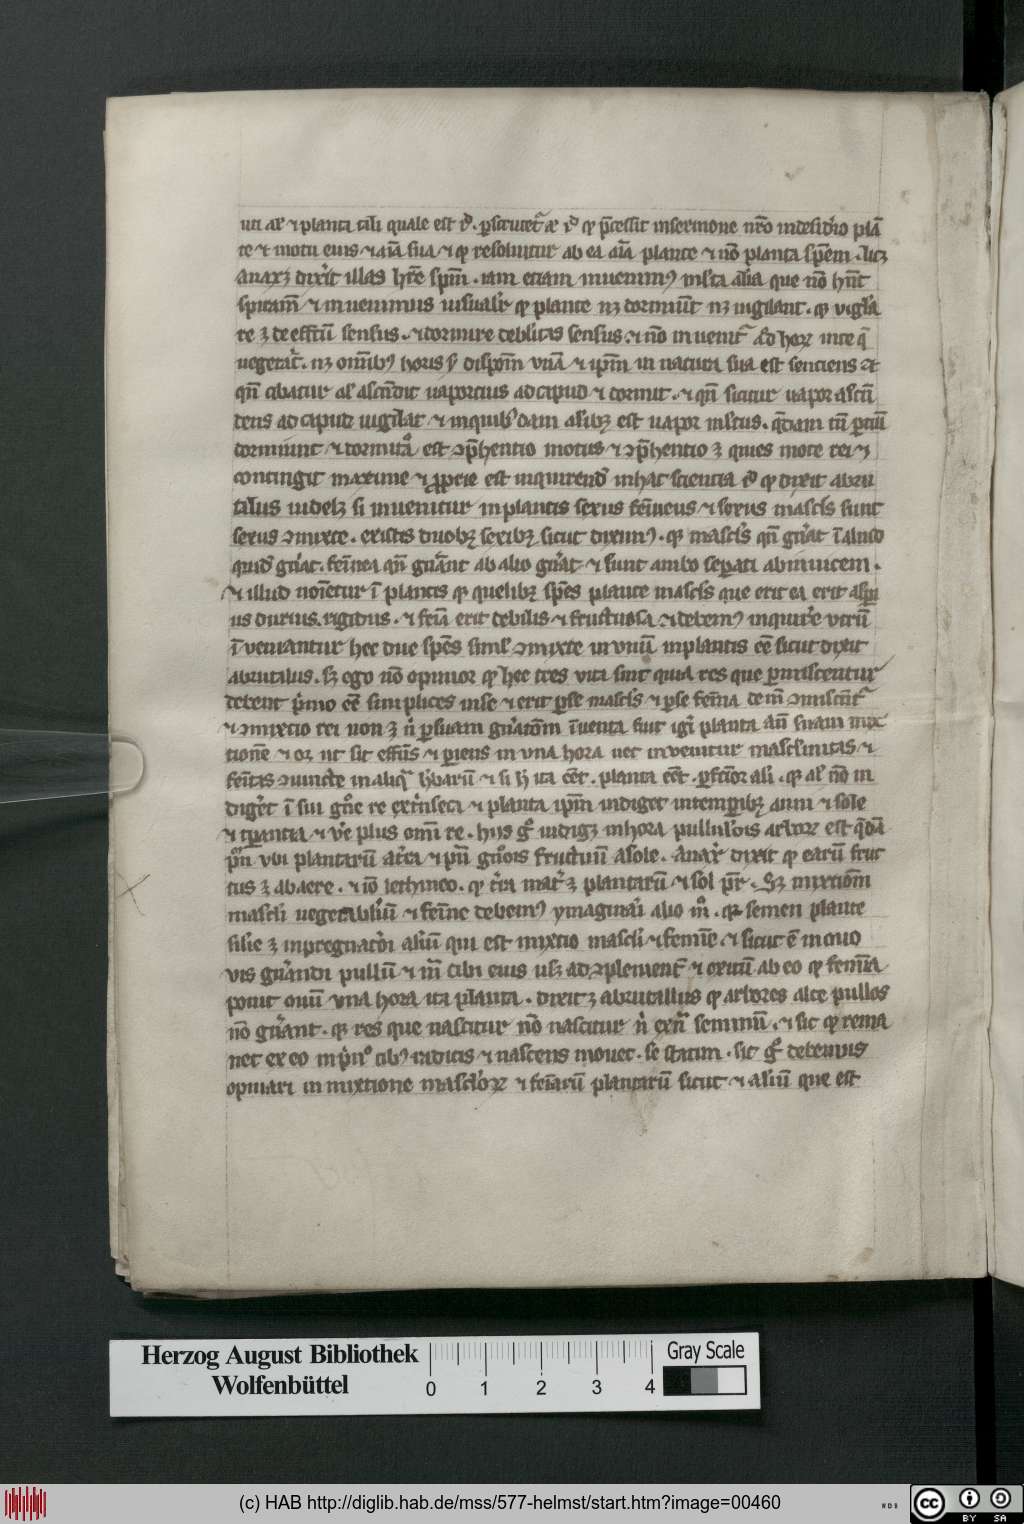 uti al' ⁊ planta tali quale est id̄. ꝑscrutet᷑ ⁊ id̄ ꝙ p̄cessit in sermone nr̄o in desid'io plā
te ⁊ motu eius ⁊ aīa sua ⁊ ꝙ resoluitur ab ea aīa plante ⁊ nō planta spēm. licꝫ
anaxꝫ dixit illas hr̄e spm̄. iam etiam inuenimꝰ insecta alia que nō hn̄t
spiram̄ ⁊ inuenimus uisualr̄ ꝙ plante nꝫ dormiūt nꝫ uigilant. ꝙ vigila
re ꝫ de effectū sensus. ⁊ dormire debl'itas sensus ⁊ nō inuenit᷑ ad hoꝝ in re q̄
uegetat᷑. nꝫ om̄ibꝰ horis s'ꝫ disposm̄ vnā ⁊ ip̄m in natura sua est senciens et
qn̄ cibatur al' ascendit uaporeius ad capud ⁊ dormit. ⁊ qn̄ sicitur uapor ascen̄
dens ad capud uigilat ⁊ in quibꝰdam al'ibꝫ est uapor ml'tus. q̄dam tn̄ pctiū
dormiunt ⁊ dormitaō est ꝯp̄hentio motus ⁊ ꝯp̄hentio ꝫ quies mote rei ⁊
contingit maxime ⁊ ꝓprie est inquirend' in hac sciencia id̄ ꝙ dixit abru
talus uidelꝫ si inuenitur in plantis sexus femīeus ⁊ sexus mascl's sunt
sexus ꝯmixte. existis duobꝫ sexibꝫ sicut diximꝰ. ꝙ mascl's qn̄ gn̄at ī aliud
quid' gn̄at. femīea qn̄ gn̄ant ab alio gn̄at ⁊ sunt ambo seꝑati abinuicem.
⁊ illud noīetur ī plantis ꝙ quelibꝫ spēs plante mascl's que erit ea erit asperi
us durius rigidus. ⁊ feīa erit debilis ⁊ fructuosa ⁊ debemꝰ inquirere vtrū
īueniantur hee due spēs simil' ꝯmixte in vnū in plantis eē sicut dixit
abrutalus. sꝫ ego nō opinor ꝙ hee tres vita sint quia res que ꝑmiscentur
debent primo eē simplices in se ⁊ erit ꝑ se mascl's ⁊ ꝑ se femīa de m̄ ꝯmiscent᷑
⁊ ꝯmixtio rei non ꝫ n̄ ꝑ suam gn̄atōm īuenta fuit igit' planta an̄ suam mix
tionē ⁊ oꝝ ut sit effn̄s ⁊ patiens in vna hora nec inuenitur mascl'initas ⁊
femītas ꝯiuncte in aliqͥ hb'arū ⁊ si h' ita eēt. planta eēt. ꝑfcior ali. ꝙ al' nō in
diget ī sui gn̄e re extrīseci ⁊ planta ip̄m indiget in temporibꝫ anni ⁊ sole
⁊ temꝑantia ⁊ vē plus omī re. hijs gͦ indigꝫ in hora pullul'ois arboꝝ est q̄dā
prīn vbi plantarū a t'ra ⁊ prīn gn̄ois fructuū a sole. anax' dixit ꝙ earū fruc
tus ꝫ ab aere. ⁊ iō lethineo. ꝙ t'ra mat' ꝫ plantarū ⁊ sol pr̄. Sꝫ mixtiom̄
mascl'i uegetabl'iū ⁊ femīe debemꝰ ymaginari alio mͦ. quia semen plante
sil'e ꝫ inpregnatōi al'iū qui est mixtio mascl'i ⁊ femīe. ⁊ sicut ē in ouo
vis gn̄andi pullū ⁊ m̄ cibi eius usꝫ ad ꝯplement' ⁊ exitū ab eo ꝙ femīa
ponit ouū vna hora ita planta. dixit ꝫ abrutallus ꝙ arbores alce pullos
nō gn̄ant. ꝙ res que nascitur nō nascitur n̄ ex n̄ semīnū. ⁊ sic ꝙ rema
net ex eo in prīnͦ cibꝰ radicis ⁊ nascens mouet. se statim. sic gͦ debemus
opinari in mixtione mascl'oꝝ ⁊ femīarū plantarū sicut ⁊ al'iū que est
Herzog August Bibliothek
Wolfenbüttel
0 1 2 3 4
Gray Scale
(c) HAB http://diglib.hab.de/mss/577-helmst/start.htm?image=00460
WDB
cc BY SA